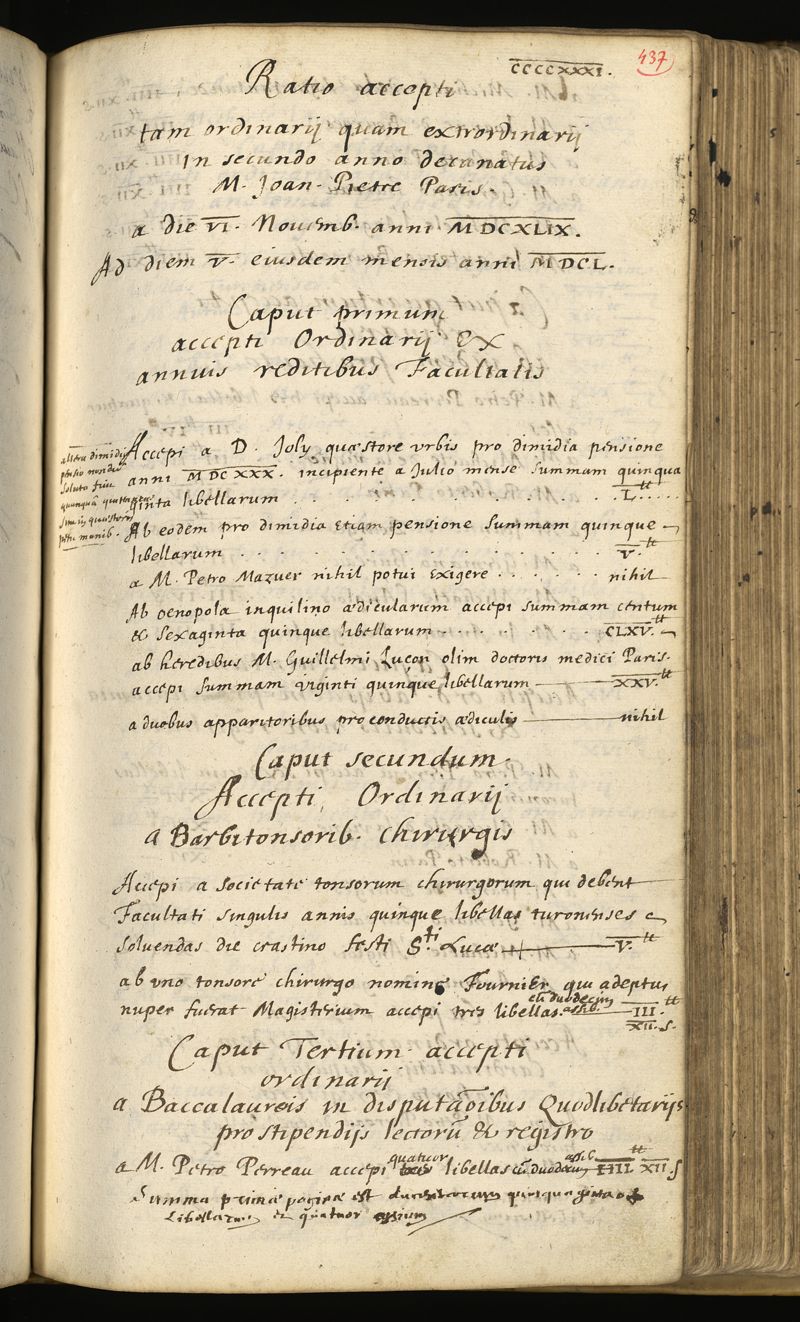 CCCCXXXI. 437
Ratio accepti
tam ordinarij quam extrordinarij
in secundo anno decanatus
M. Joan. Pietre Paris.
a die VI. Novemb. anni MDCXLIX.
Ad diem V. eiusdem mensis anni MDCL.
Caput primum
accepti Ordinarij Ex
annuis reditibus Facultatis
altera dimidij
soluta fuit
Accepi a D. Joly quæstore vrbis pro dimidia pensione
anni MDCXXX. incipiente a Julio mense summam quinqua
ginta libellarum . . . . . . . . . . . . L.tt . . . .
Ab eodem pro dimidia Etiam pensione summam quinque
libellarum . . . . . . . . . . . . V.tt
a M. Petro Mazuer nihil potui Exigere . . . . . . nihil
Ab oenopola inquilino ædicularum accepi summam centum
& sexaginta quinque libellarum . . . . . . . CLXV.tt
ab heredibus M. Guillelmi Lucon olim doctoris medici Paris.
accepi summam viginti quinque libellarum — XXV.tt
a duobus apparitoribus pro conductis ædiculis — nihil
Caput secundum.
Accepti Ordinarij
a Barbitonsorib. chirurgis
Accepi a societate tonsorum chirurgorum qui debent
Facultati singulis annis quinque libellas turonenses
soluendas die crastino festi S.ti Lucæ — V.tt
ab vno tonsore chirurgo nomine Fournier qui adeptus
nuper fuerat Magisterium accepi tres libellas cū duodecim assib. III.tt
XII. s.
Caput Tertium accepti
ordinarij
a Baccalaureis in disputāoibus Quodlibetarijs
pro stipendijs lectorū & registro
a M. Petro Perreau accepi quatuor libellas cū duodecim assib. IIII.tt XII s
Summa primæ paginæ est ducentorum quinquaginta
libellarum et quatuor assium